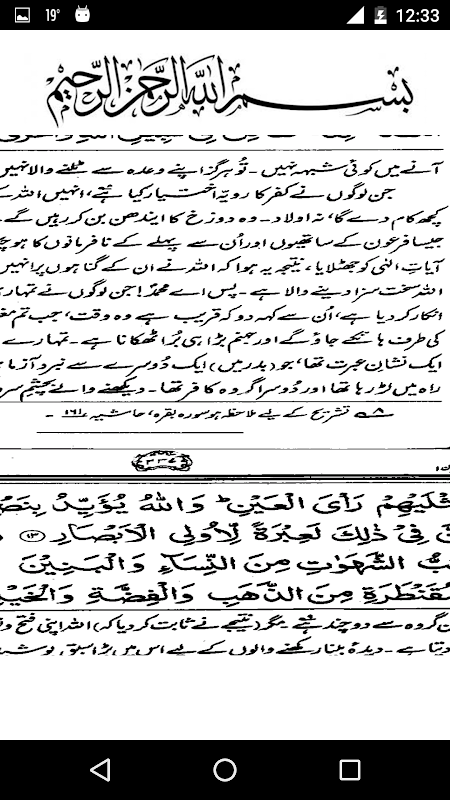 19° 12:33
بسم الله الرحمن الرحيم
آنے میں کوئی شبہ نہیں۔ تُو ہرگز اپنے وعدہ سے ٹلنے والا نہیں
جن لوگوں نے کفر کا رویہ اختیار کیا ہے، انہیں اللہ کے
کچھ کام دے گا، نہ اولاد۔ وہ دوزخ کا ایندھن بن کر رہیں گے۔
جیسا فرعون کے ساتھیوں اور اُن سے پہلے کے نافرمانوں کا ہو چکا
آیاتِ الٰہی کو جھٹلایا، نتیجہ یہ ہوا کہ اللہ نے ان کے گناہوں پر انہیں
اللہ سخت سزا دینے والا ہے۔ پس اے محمدؐ! جن لوگوں نے تمہاری
انکار کر دیا ہے، اُن سے کہہ دو کہ قریب ہے وہ وقت، جب تم مغلوب
کی طرف ہانکے جاؤ گے اور جہنم بڑا ہی بُرا ٹھکانا ہے۔ تمہارے
ایک نشانِ عبرت تھا، جو (بدر میں) ایک دُوسرے سے نبرد آزما
راہ میں لڑ رہا تھا اور دُوسرا گروہ کافر تھا۔ دیکھنے والے بچشمِ سر
۸ تشریح کے لیے ملاحظہ ہو سورہ بقرہ، حاشیہ ۱۶۱۔
۲۳۷
مِّثْلَيْهِمْ رَأْىَ الْعَيْنِ ۭ وَاللّٰهُ يُؤَيِّدُ بِنَصْ
نَّ فِىْ ذٰلِكَ لَعِبْرَةً لِّاُولِى الْاَبْصَارِ ۝۱۳
بُّ الشَّهَوٰتِ مِنَ النِّسَآءِ وَالْبَنِيْنَ
مُقَنْطَرَةِ مِنَ الذَّهَبِ وَالْفِضَّةِ وَالْخَيْ
گروہ سے دوچند ہے مگر (نتیجے نے ثابت کر دیا کہ) اللہ اپنی فتح و
دیتا ہے۔ دیدۂ بینا رکھنے والوں کے لیے اس میں بڑا سبق پوشیدہ